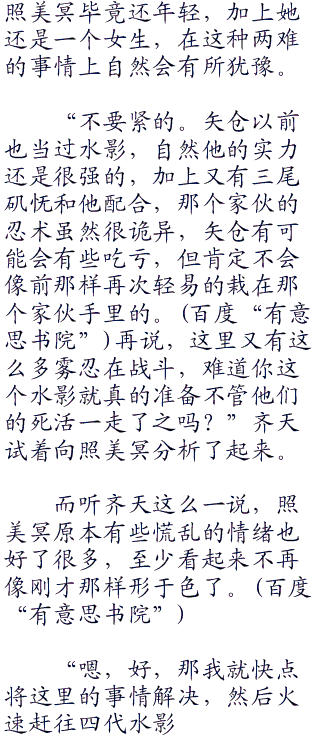 照美冥毕竟还年轻，加上她
还是一个女生，在这种两难
的事情上自然会有所犹豫。
“不要紧的。矢仓以前
也当过水影，自然他的实力
还是很强的，加上又有三尾
矶怃和他配合，那个家伙的
忍术虽然很诡异，矢仓有可
能会有些吃亏，但肯定不会
像前那样再次轻易的栽在那
个家伙手里的。(百度“有意
思书院”)再说，这里又有这
么多雾忍在战斗，难道你这
个水影就真的准备不管他们
的死活一走了之吗？”齐天
试着向照美冥分析了起来。
而听齐天这么一说，照
美冥原本有些慌乱的情绪也
好了很多，至少看起来不再
像刚才那样形于色了。(百度
“有意思书院”)
“嗯，好，那我就快点
将这里的事情解决，然后火
速赶往四代水影